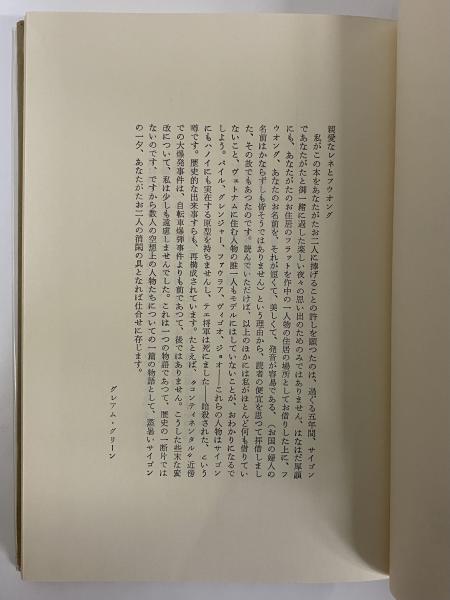 親愛なレネとフウオング
私がこの本をあなたがたお二人に捧げることの許しを願つたのは、過ぐる五年間、サイゴン
であなたがたと御一緒に過した楽しい夜々の思い出のためのみではありません、はなはだ厚顔
にも、あなたがたのお住居のフラットを作中の一人物の住居の場所としてお借りした上に、フ
ウオング、あなたのお名前を、それが短くて、美しくて、発音が容易である、（お国の婦人の
名前はかならずしも皆そうではありません）という理由から、読者の便宜を思つて拝借しまし
た、その故でもあつたのです。読んでいただけば、以上のほかには私がほとんど何も借りてい
ないこと、ヴェトナムに住む人物の誰一人もモデルにはしていないことが、おわかりになるで
しよう。パイル、グレンジャー、ファウラア、ヴィゴオ、ジョオ――これらの人物はサイゴン
にもハノイにも実在する原型を持ちませんし、テエ将軍は死にました――暗殺された、という
噂です。歴史的な出来事すらも、再構成されています。たとえば、〝コンティネンタル〟近傍
での大爆発事件は、自転車爆弾事件よりも前であつて、後ではありません。こうした些末な変
改について、私は少しも遠慮しませんでした。これは一つの物語であつて、歴史の一断片では
ないのです。ですから数人の空想上の人物たちについての一篇の物語として、蒸暑いサイゴン
の一夕、あなたがたお二人の消閑の具となれば仕合せに存じます。
グレアム・グリーン